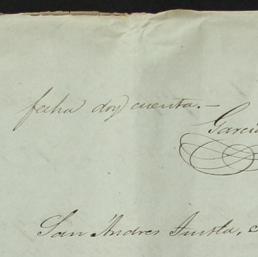 fecha doy cuenta.—
Garcia
San Andres Tuxtla,